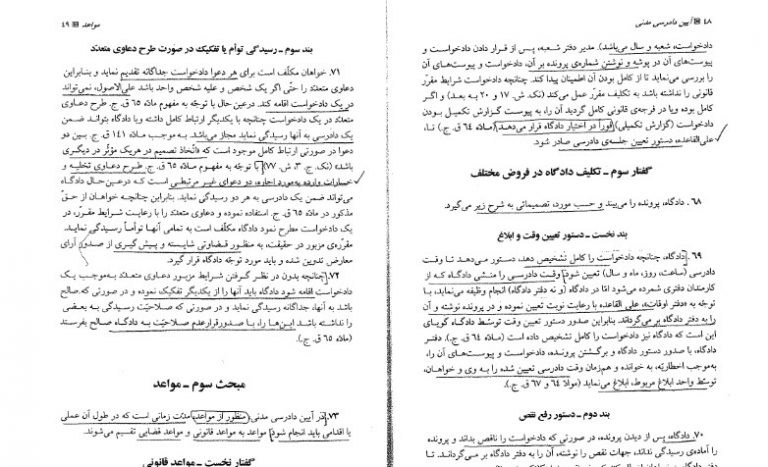 ۴۸ آیین دادرسی مدنی
دادخواست، شعبه و سال می‌باشد). مدیر دفتر شعبه، پس از قرار دادن دادخواست و
پیوست‌های آن در پوشه و نوشتن شماره‌ی پرونده بر آن، دادخواست و پیوست‌های آن
را بررسی می‌نماید تا از کامل بودن آن اطمینان پیدا کند. چنانچه دادخواست شرایط مقرّر
قانونی را نداشته باشد به تکلیف مقرّر عمل می‌کند (نک. ش. ۱۷ و ۲۰ به بعد) و اگر
کامل بوده ویا در فرجه‌ی قانونی کامل گردید آن را، به پیوست گزارش تکمیل بودن
دادخواست (گزارش تکمیلی) فوراً در اختیار دادگاه قرار می‌دهد (ماده ۶۴ ق. ج.) تا،
علی‌القاعده، دستور تعیین جلسه‌ی دادرسی صادر شود.
گفتار سوم ـ تکلیف دادگاه در فروض مختلف
۶۸. دادگاه، پرونده را می‌بیند و حسب مورد، تصمیماتی به شرح زیر می‌گیرد.
بند نخست ـ دستور تعیین وقت و ابلاغ
۶۹. دادگاه، چنانچه دادخواست را کامل تشخیص دهد، دستور می‌دهد تا وقت
دادرسی (ساعت، روز، ماه و سال) تعیین شود. وقت دادرسی را منشی دادگاه که از
کارمندان دفتری شمرده می‌شود امّا در دادگاه (و نه دفتر دادگاه) انجام وظیفه می‌نماید، با
توجّه به «دفتر اوقات»، علی القاعده با رعایت نوبت تعیین نموده و در پرونده نوشته و آن
را به دفتر دادگاه بر می‌گرداند. بنابراین صدور دستور تعیین وقت توسط دادگاه گویای
این است که دادگاه نیز دادخواست را کامل تشخیص داده است (ماده ۶۴ ق. ج.). دفتر
دادگاه، پس از صدور دستور دادگاه و برگشتن پرونده، دادخواست و پیوست‌های آن را،
به‌موجب اخطاریّه، به خوانده و هم‌زمان وقت دادرسی تعیین شده را به وی و خواهان،
توسّط واحد ابلاغ مربوط، ابلاغ می‌نماید (مواد ۶۴ و ۶۷ ق. ج.).
بند دوم ـ دستور رفع نقص
۷۰. دادگاه، پس از دیدن پرونده، در صورتی که دادخواست را ناقص بداند و پرونده
را آماده‌ی رسیدگی نداند، جهات نقص را نوشته، آن را به دفتر دادگاه بر می‌گرداند. تا
مواعد ۴۹
بند سوم ـ رسیدگی توأم یا تفکیک در صورت طرح دعاوی متعدّد
۷۱. خواهان مکلّف است برای هر دعوا دادخواست جداگانه تقدیم نماید و بنابراین
دعاوی متعدّد را حتّی اگر یک شخص و علیه یک شخص واحد باشد علی‌الاصول، نمی‌تواند
در یک دادخواست اقامه کند. درعین حال با توجّه به مفهوم مادّه ۶۵ ق. ج. طرح دعاوی
متعدّد در یک دادخواست چنانچه با یکدیگر ارتباط کامل داشته ویا دادگاه بتواند ضمن
یک دادرسی به آنها رسیدگی نماید مجاز می‌باشد. به موجب مادّه ۱۴۱ ق. ج. بین دو
دعوا در صورتی ارتباط کامل موجود است که «اتّخاذ تصمیم در هریک مؤثّر در دیگری
باشد» (نک. ج. ۳، ش. ۷۷). با توجّه به مفهوم مادّه ۶۵ ق. ج. طرح دعاوی تخلیه و
خسارات وارده به‌مورد اجاره، دو دعوای غیر مرتبطی است که درعین‌حال دادگاه
می‌تواند ضمن یک دادرسی به هر دو رسیدگی نماید. بنابراین چنانچه خواهان از حقّ
مذکور در مادّه ۶۵ ق. ج. استفاده نموده و دعاوی متعدّد را با رعایت شرایط مقرّر، در
یک دادخواست مطرح نمود دادگاه مکلّف است به تمامی آنها توأماً رسیدگی نماید.
مقرّره‌ی مزبور در حقیقت، به منظور قضاوتی شایسته و پیش‌گیری از صدور آرای
معارض تدوین شده و باید مورد توجّه دادگاه قرار گیرد.
۷۲. چنانچه بدون در نظر گرفتن شرایط مزبور دعاوی متعدّد به‌موجب یک
دادخواست اقامه شود دادگاه باید آنها را از یکدیگر تفکیک نموده و در صورتی که صالح
باشد به آنها، جداگانه رسیدگی نماید و در صورتی که صلاحیّت رسیدگی به بعضی
را نداشته باشد این‌ها را، با صدورقرارعدم صلاحیّت به دادگاه صالح بفرستد
(مادّه ۶۵ ق. ج.).
مبحث سوم ـ مواعد
۷۳. در آیین دادرسی مدنی، منظور از مواعد، مدّت زمانی است که در طول آن عملی
یا اقدامی باید انجام شود. مواعد به مواعد قانونی و مواعد قضایی تقسیم می‌شوند.
گفتار نخست ـ مواعد قانونی